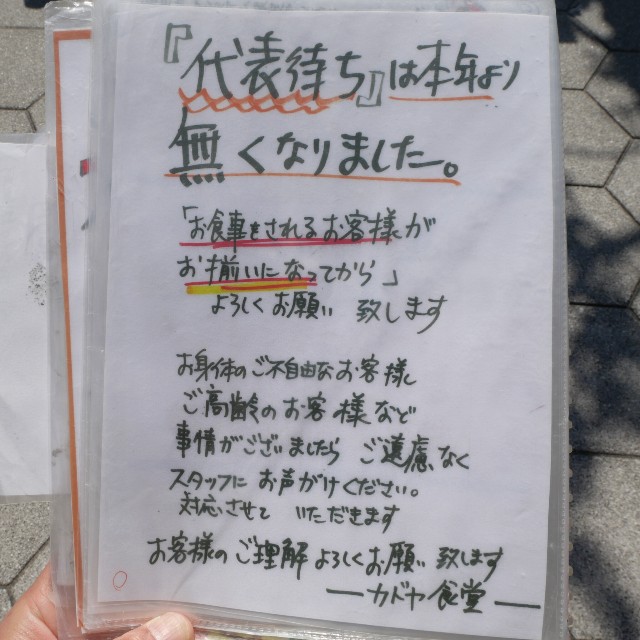 『代表待ち』は本年より
無くなりました。
「お食事をされるお客様が
お揃いになってから」
よろしくお願い致します
お身体のご不自由なお客様
ご高齢のお客様など
事情がございましたら ご遠慮なく
スタッフに お声がけください。
対応させて いただきます
お客様のご理解よろしくお願い致します
― カドヤ食堂 ―